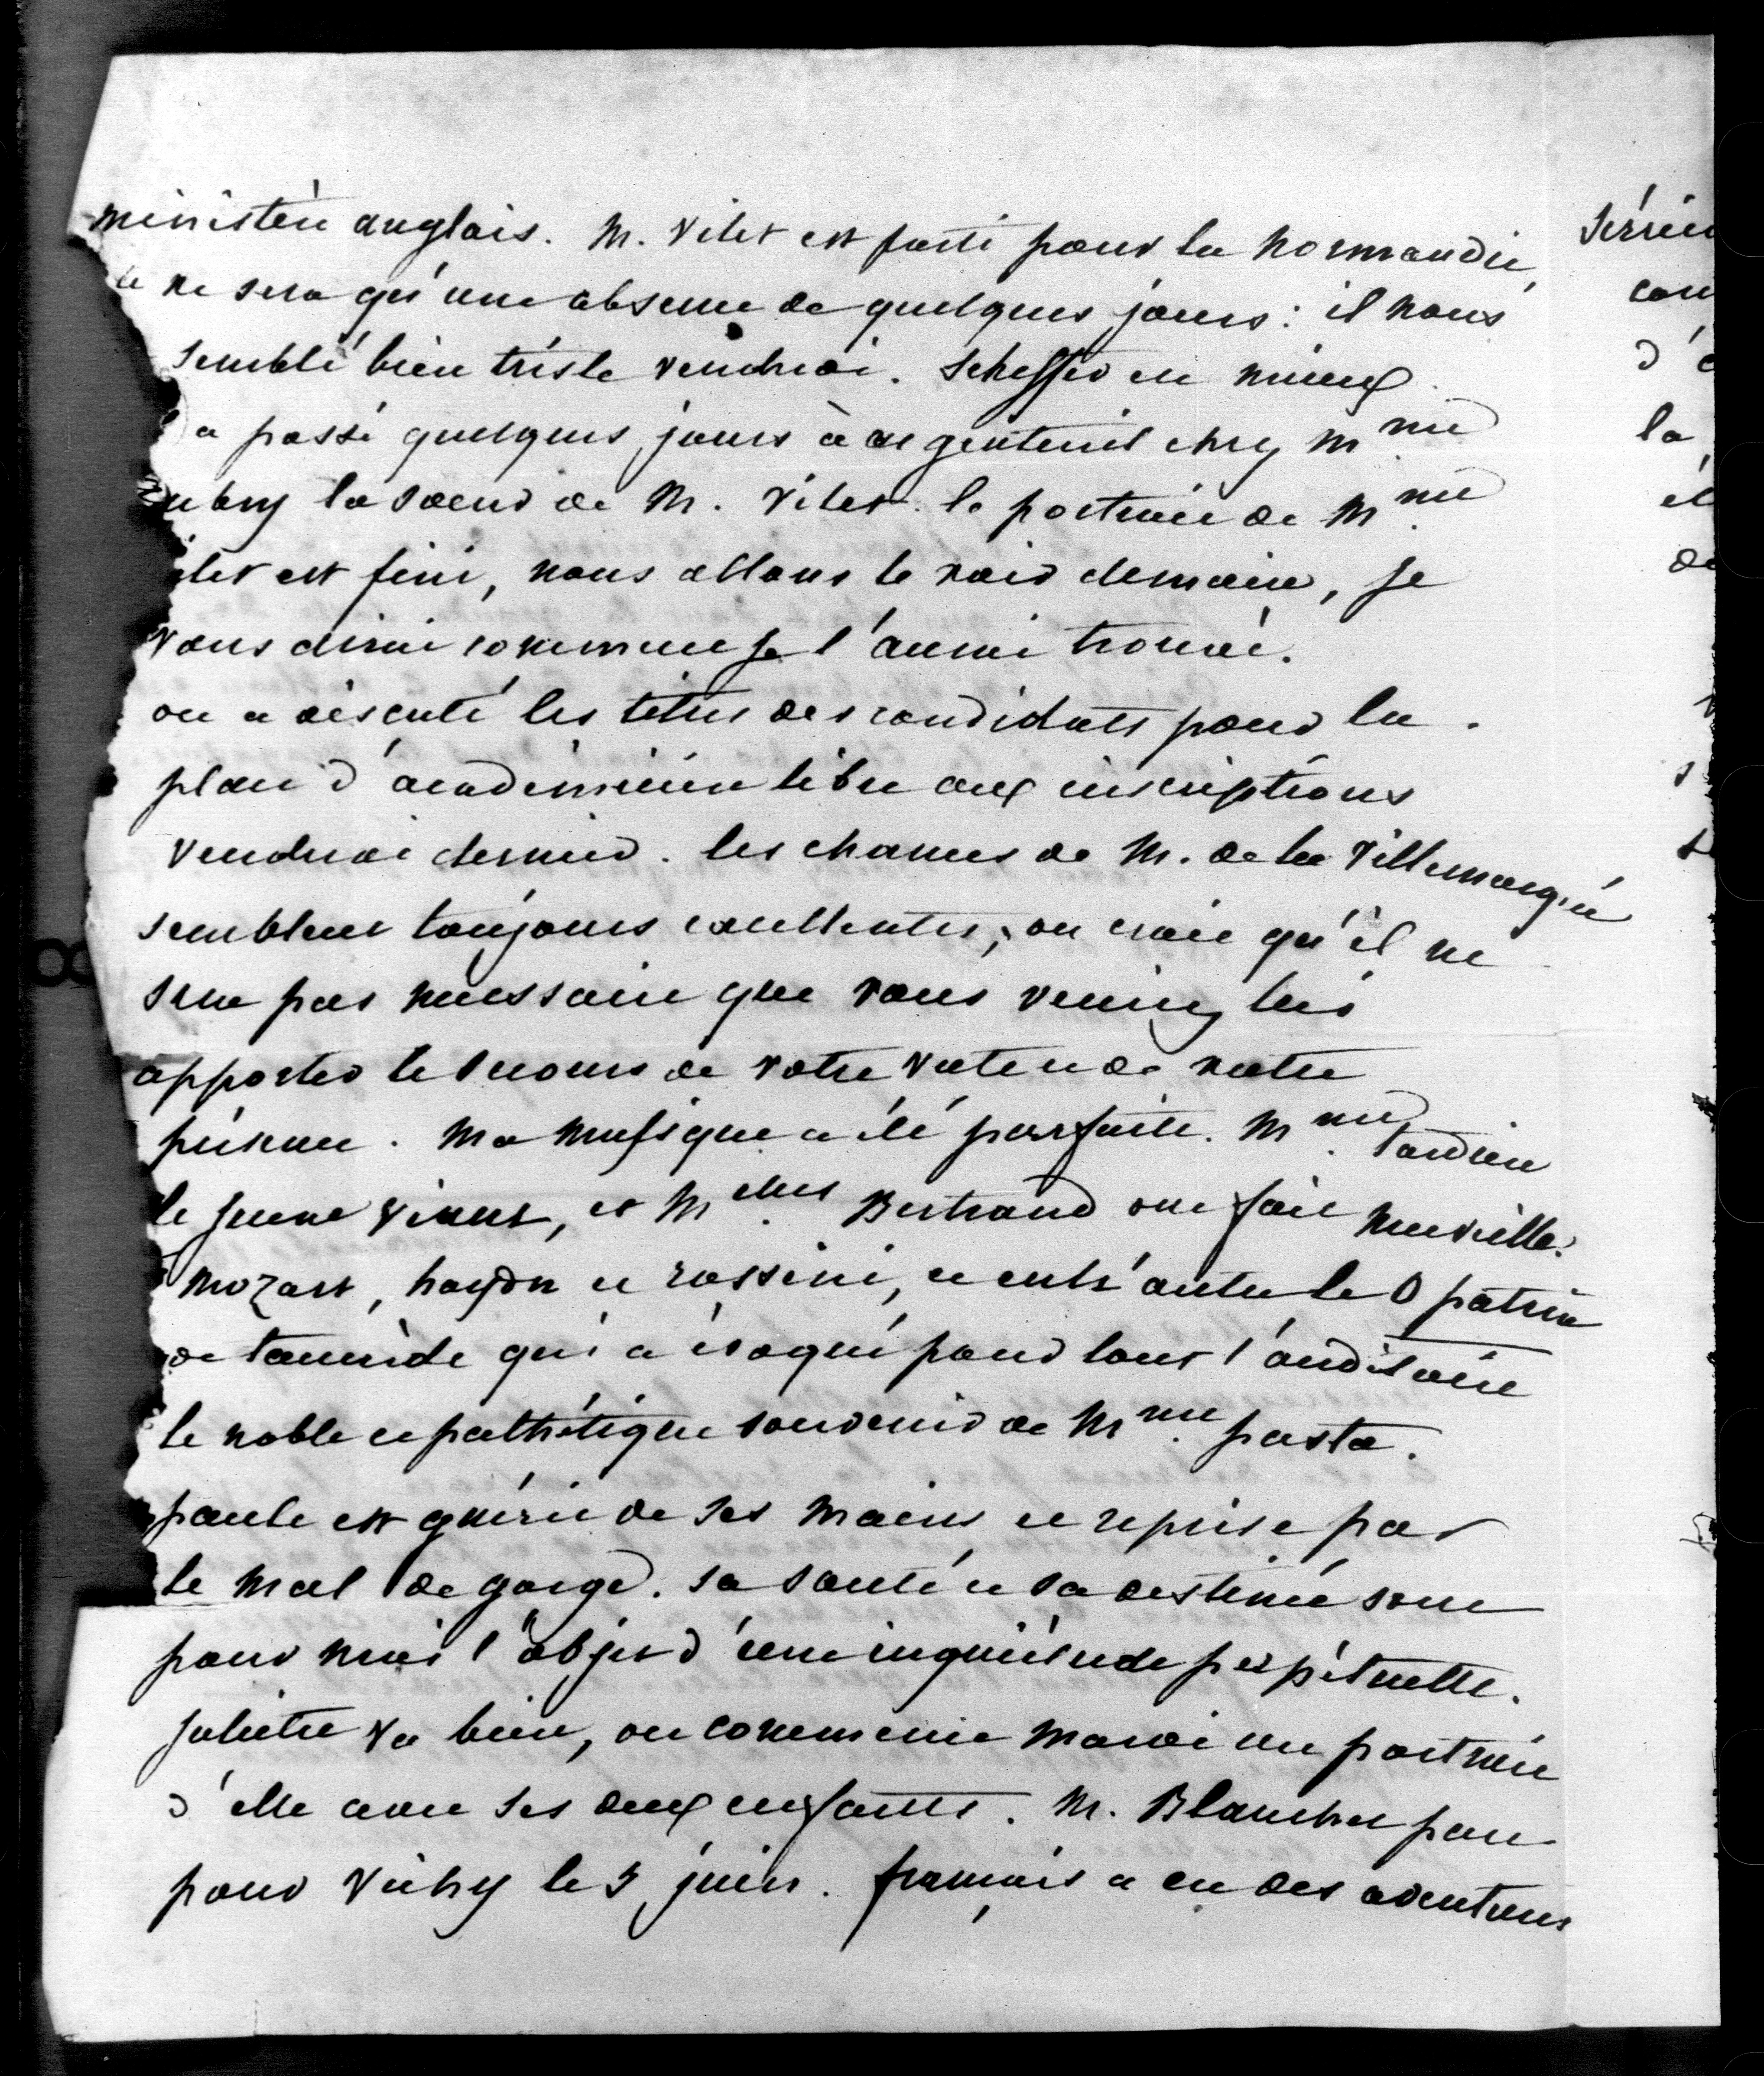 ministère anglais. M. Vitet est parti pour la normandie,
ce ne sera qu'une absence de quelques jours : il nous
semblé bien triste vendredi. Scheffer va mieux
a passé quelques jours à argenteuil chez Mme
aubry la soeur de M. Vitet. le portrait de Mme
itet est fini, nous allons le voir demain, je
vous dirai comment je l'aurai trouvé.
on a discuté les titres des candidats pour la
place d'académicien libre aux inscriptions
vendredi dernier. les chances de M. de la Villemarqué
semblent toujours excellentes, on croit qu'il ne
sera pas nécessaire que vous veniez lui
apporter le secours de votre vote et de votre
présence. Ma musique a été parfaite. Mme tardieu
le jeune Viault, et Melles Bertrand ont fait merveille.
Mozart, haydn et rossini, et entr'autre le O patria
de tancrède qui a évoqué pour tout l'auditoire
le noble et pathétique souvenir de Mme pasta.
paule est guérie de ses mains et reprise par
le mal de gorge. sa santé et sa destinée sont
pour moi l'objet d'une inquiétude perpétuelle.
juliette va bien, on commence mardi un portrait
d'elle avec ses deux enfants. M. Blanchet part
pour Vichy le 5 juin. françois a eu des aventures
con
d'
la
de